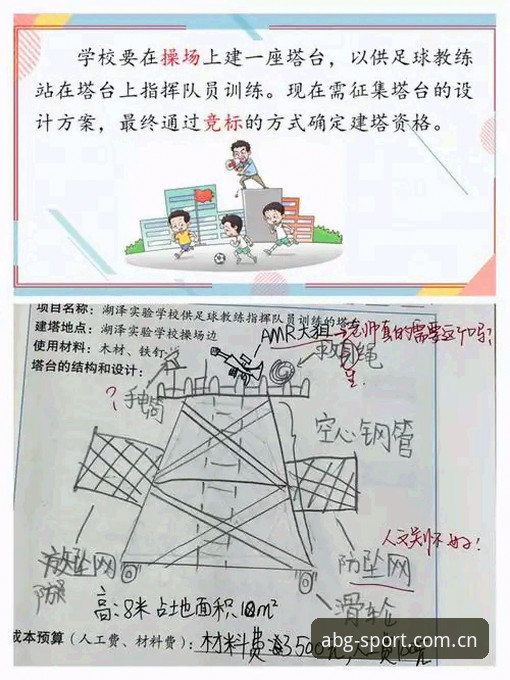 学校要在操场上建一座塔台，以供足球教练
站在塔台上指挥队员训练。现在需征集塔台的设
计方案，最终通过竞标的方式确定建塔资格。
项目名称：湖泽实验学校供足球教练指挥队员训练的塔
建塔地点：湖泽实验学校操场边
使用材料：木材、铁钉
塔台的结构和设计：
AMR大狙
老师真的需要这个吗？
救回绳
？
手电筒
空心钢管
人文关怀好！
防坠网
防坠网
滑轮
高：8米 占地面积10m²
成本预算（人工费、材料费）：材料费：3500元，人工费100元
abg-sport.com.cn